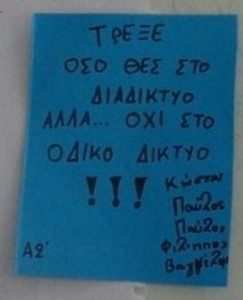 ΤΡΕΞΕ
ΟΣΟ ΘΕΣ ΣΤΟ
ΔΙΑΔΙΚΤΥΟ
ΑΛΛΑ... ΟΧΙ ΣΤΟ
ΟΔΙΚΟ ΔΙΚΤΥΟ
!!!
Κώστας
Παύλος
Παύλος
Φίλιππος
Βαγγέλης
ΑΩ'